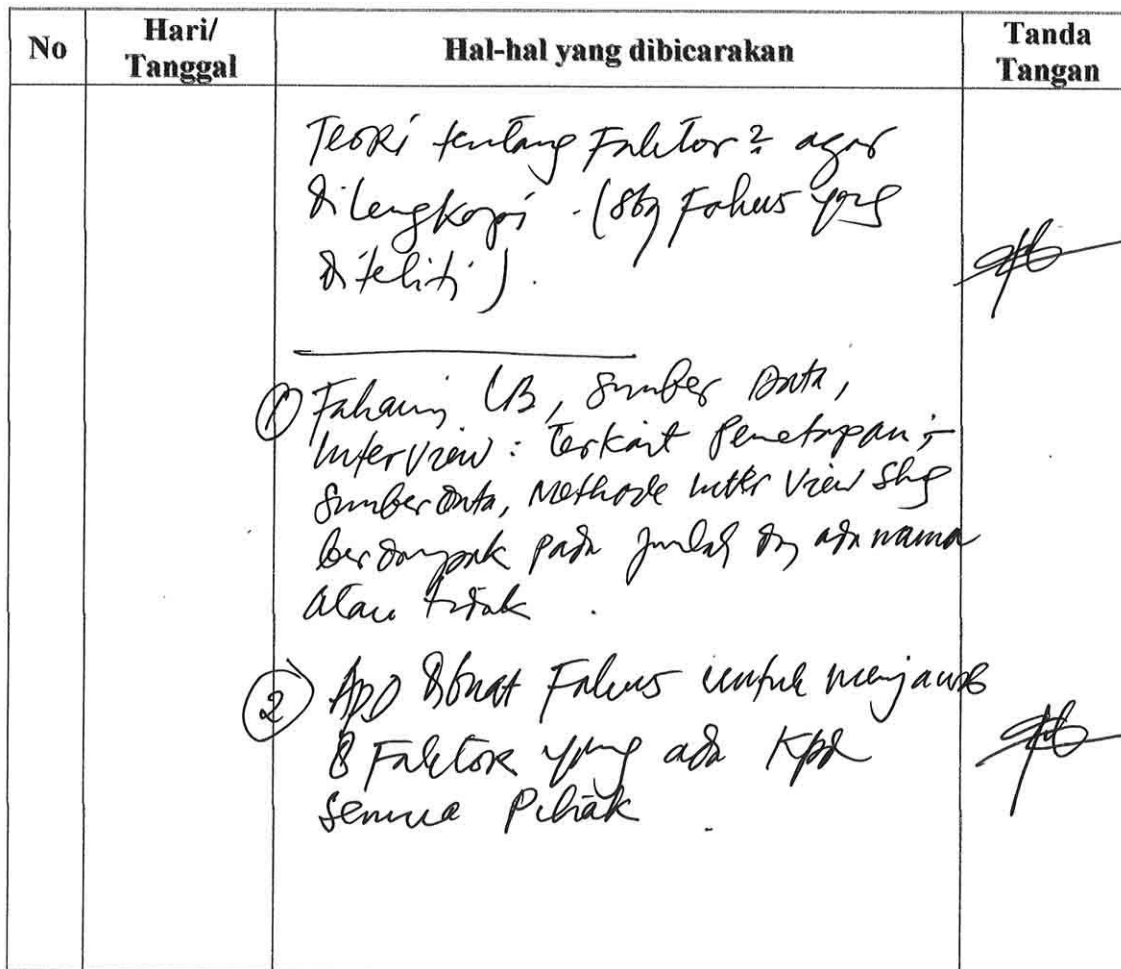 No
Hari/
Tanggal
Hal-hal yang dibicarakan
Tanda
Tangan
Teori tentang Faktor2 agar
dilengkapi. (sbg Fokus yang
diteliti).
① Sumber Data,
Interview: Terkait Penetapan
Sumber Data, Methode Inter View Shg
berdampak pada jumlah dg ada nama
atau tidak.
② dibuat Fokus untuk menjawab
8 Faktor yang ada kpd
semua Pihak.